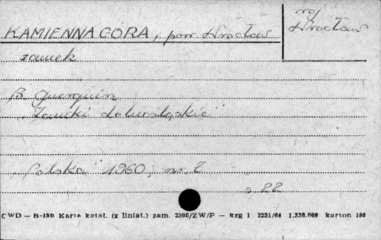 KAMIENNA GÓRA, pow. Wrocław
woj Wrocław
zamek
B. Guerquin
"Zamki dolnośląskie"
"Polska" 1960, nr. 2
s 22
CWD — B-15b Karta katal. (z liniat.) zam. 2295/ZW/P — kzg 1 2251/64 1.250.000 karton 180